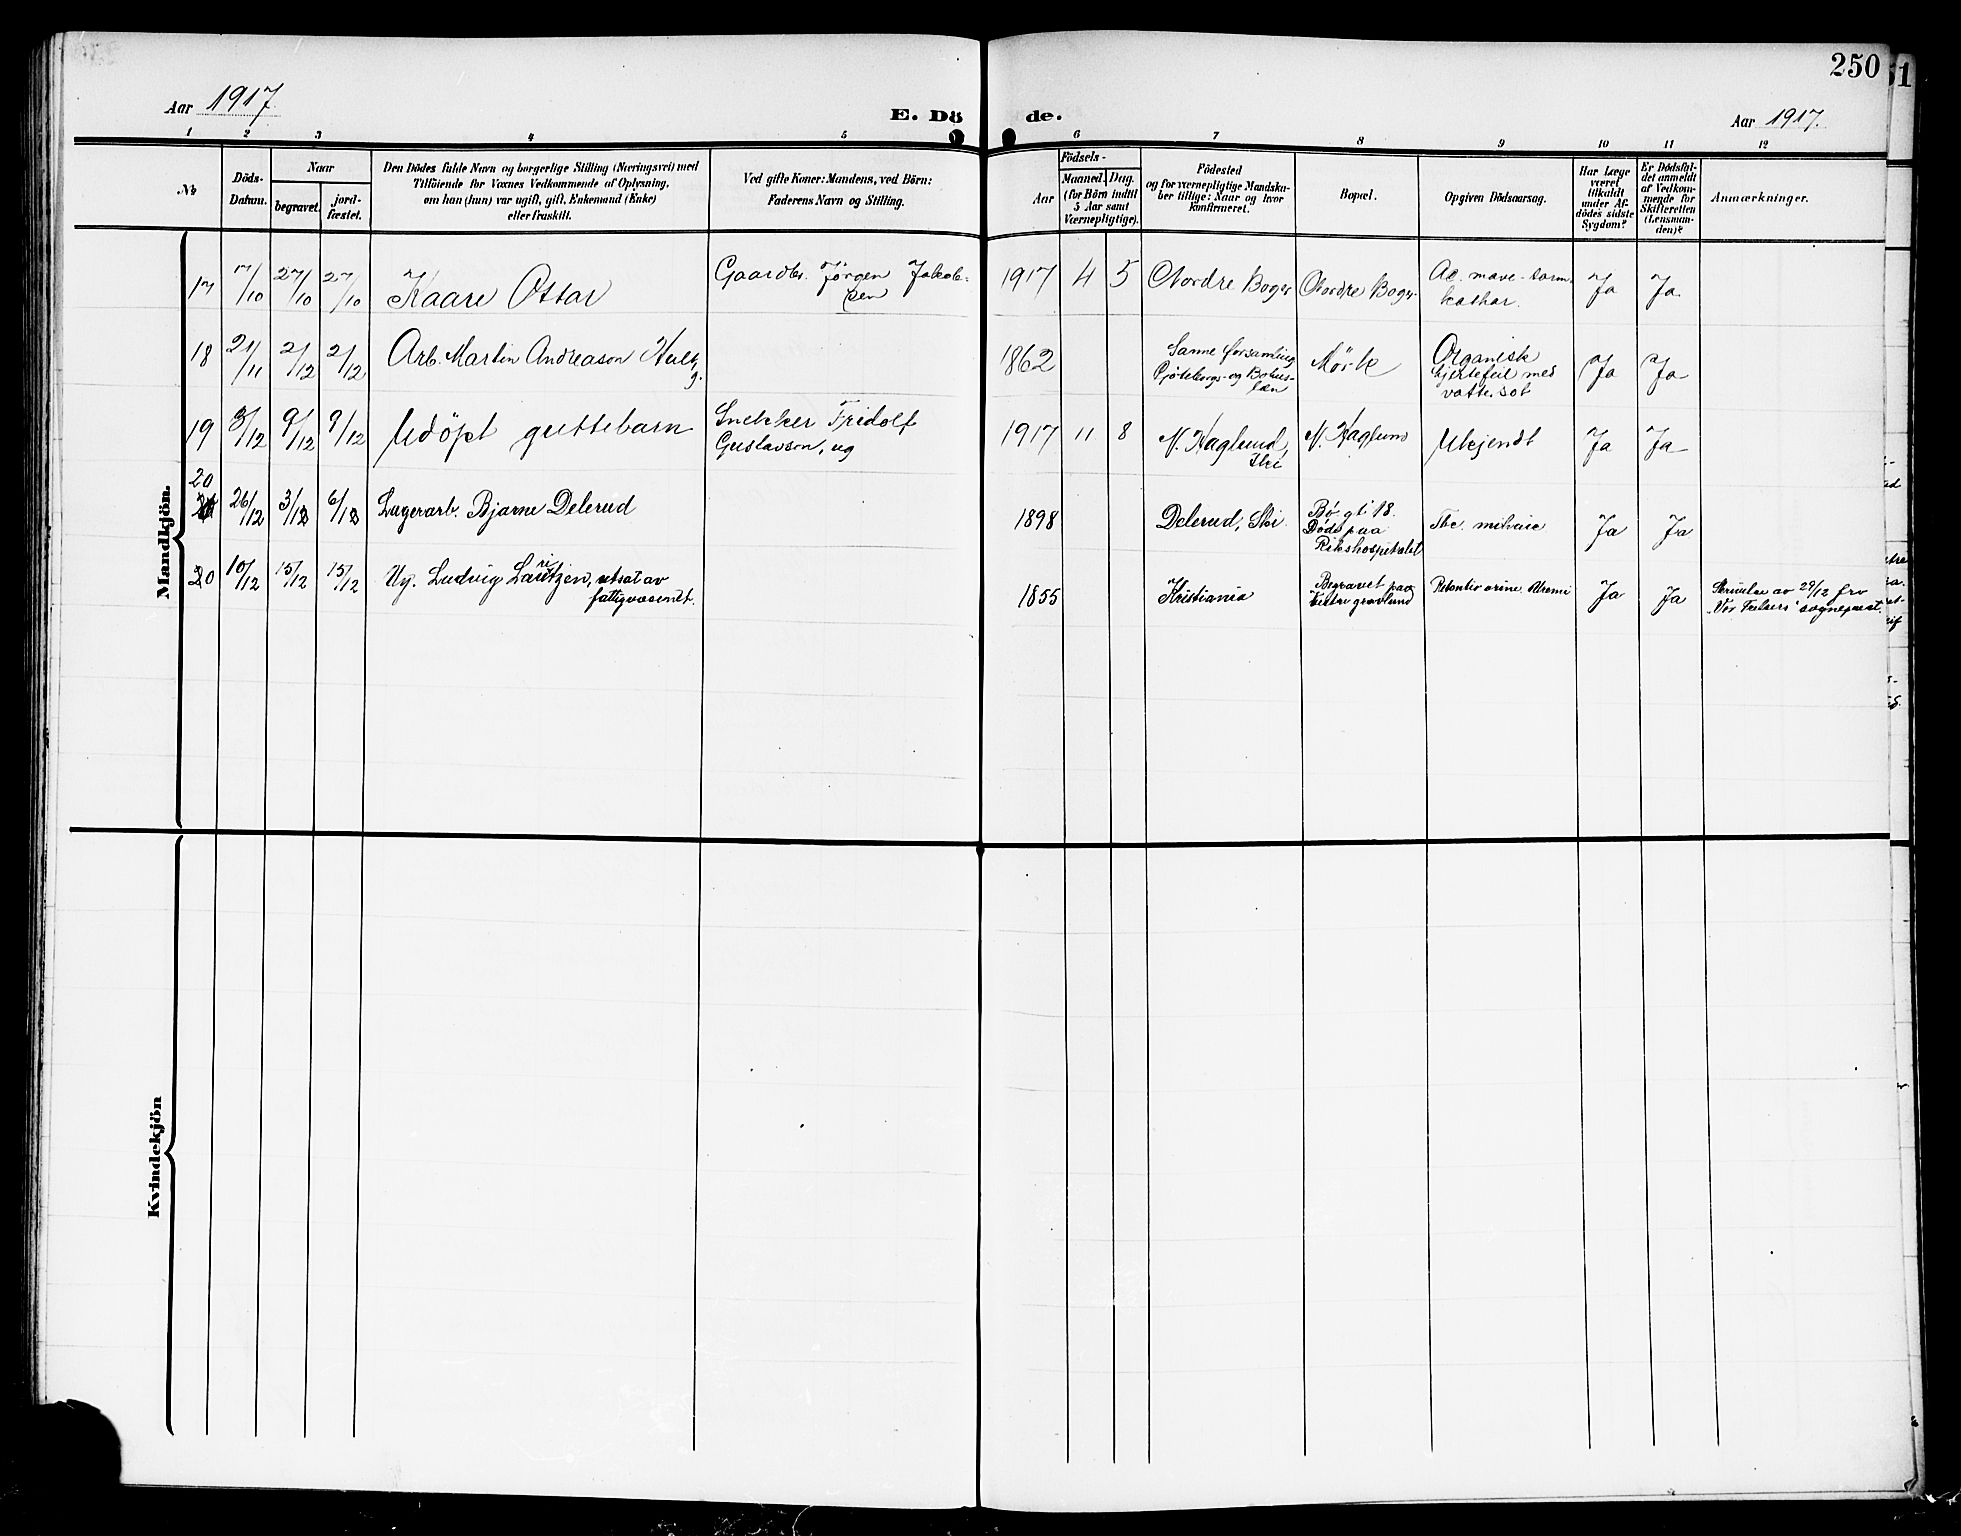 250
Aar 1917
E. Dö de.
Aar 1917.
1 2 3 4 5 6 7 8 9 10 11 12
No
Döds-
Datum.
Naar
begravet.
jord-
fæstet.
Den Dödes fulde Navn og borgerlige Stilling (Næringsvei) med
Tilföiende for Voxnes Vedkommende af Oplysning,
om han (hun) var ugift, gift, Enkemand (Enke)
eller fraskilt.
Ved gifte Koner: Mandens, ved Börn:
Faderens Navn og Stilling.
Födsels-
Aar
Maaned. Dag.
(for Börn indtil
5 Aar samt
Værnepligtige).
Födested
og for værnepligtige Mandska-
ber tillige: Naar og hvor
konfirmeret.
Bopæl.
Opgiven Dödsaarsag.
Har Læge
været
tilkaldt
under Af-
dödes sidste
Sygdom?
Er Dödsfal-
det anmeldt
af Vedkom-
mende for
Skifteretten
(Lensman-
den)?
Anmærkninger.
Mandkjön.
17 7/10 27/10 27/10 Kaare Ottar
Gaardbr. Jørgen Jakob-
sen
1917 4 5 Nordre Boger Nordre Boger
Ac. mave-tarm-
kathar.
Ja Ja
18 21/11 2/12 2/12 Arb. Martin Andreason
g.
1862
Sanne forsamling
Gjøteborgs- og Bohus-
län
Mörk
Organisk
hjertefeil med
vattersot
Ja Ja
19 3/12 9/12 9/12 Udöpt guttebarn
Snekker Fridolf
Gustavson, ug
1917 11 8
N. Haglund,
Ski
N. Haglund
Ukjendt
Ja Ja
20
26/12 3/18 6/18 Lagerarb. Bjarne Delerud
1898 Delerud, Ski.
Bø. gt. 18.
Døde paa
Rikshospitalet
Tbc. miliaie
Ja Ja
20 10/12 15/12 15/12 Ug. Ludvig Lauritzen, utsat av
fattigvæsenet.
1855 Kristiania
Begravet paa
Vestre gravlund
Retentio urine Uræmi
Ja Ja
Skrivelse av 29/12 fra
"Vor Frelsers" sogneprest.
Kvindekjön